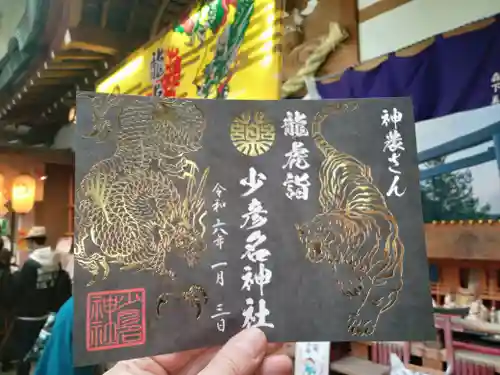 神農さん
龍虎詣
少彦名神社
令和六年一月三日
少彦名
神社
龍